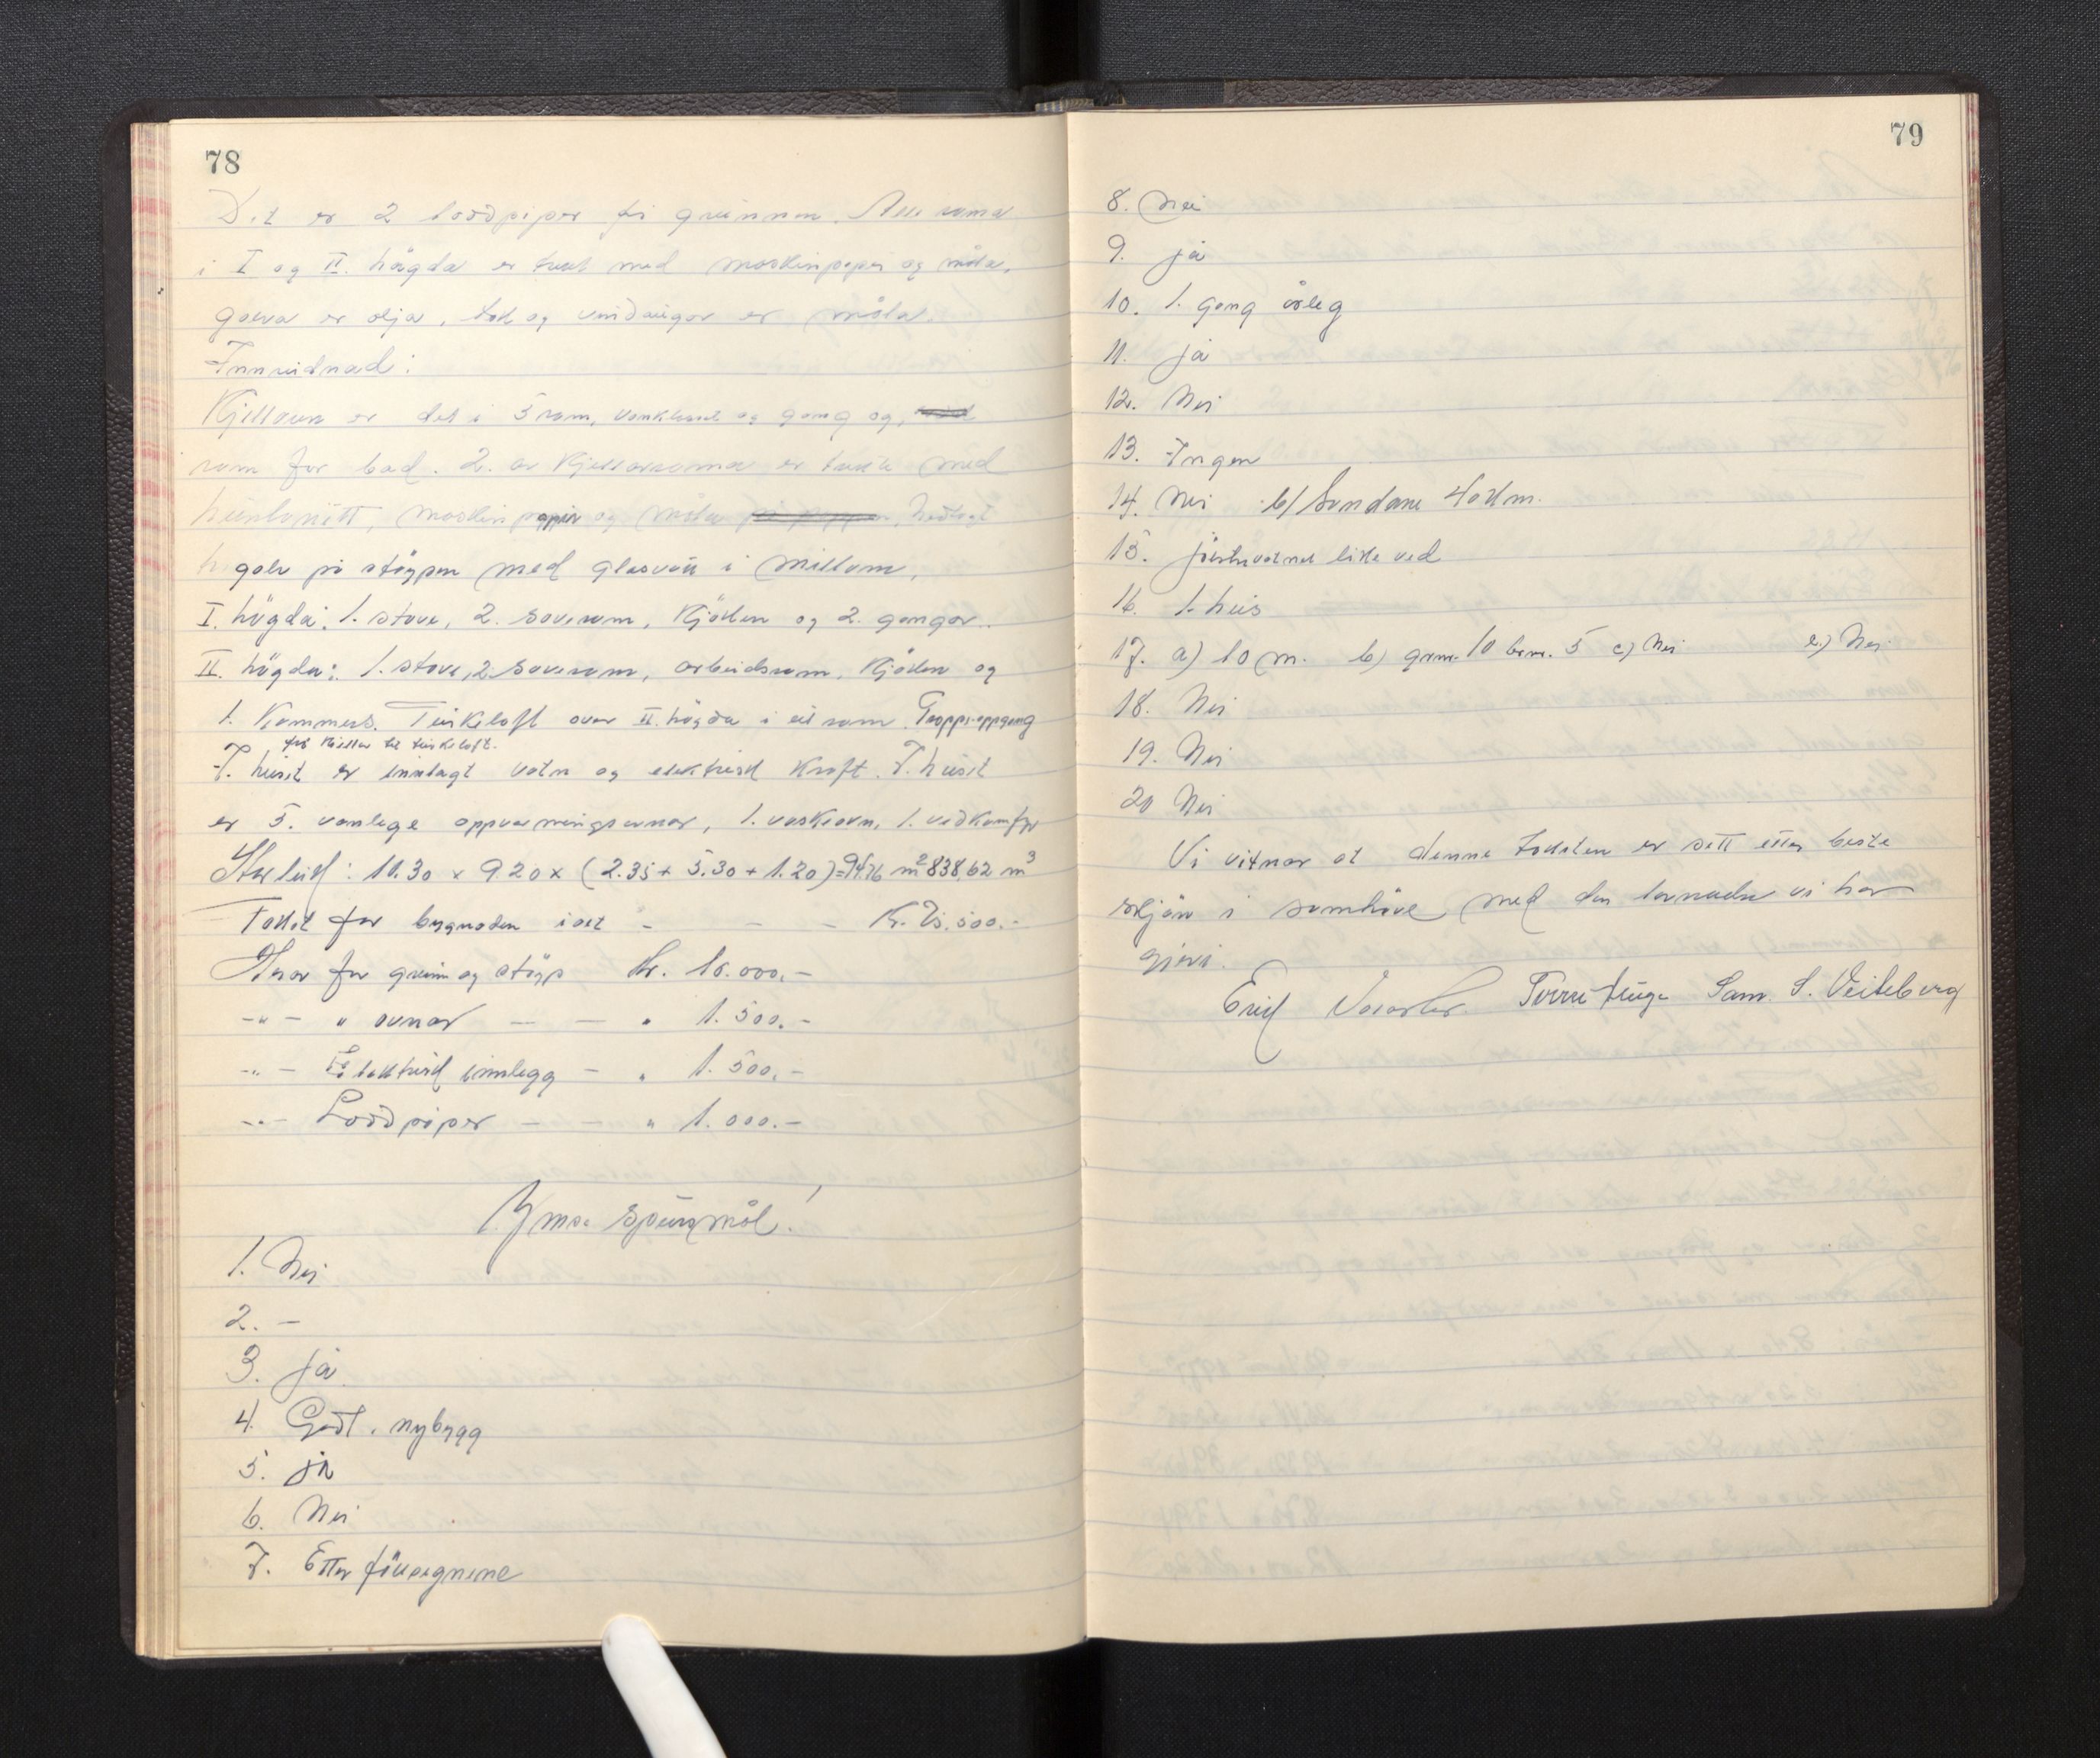 78
Det er 2 loddpipor frå grunnen. Alle roma
i I og II. högda er trekt med maskinpapir og måla,
golva er olja, tak og vindaugor er måla.
Innreidnad:
Kjellaren er det i 5 rom, vaskhus og gang og,
rom for bad. 2. av kjellarroma er trekte med
huntonitt, maskinpappir og måla nedlagt
golv på stöypen med glasvatt i millom,
I. högda: 1. stove, 2. soverom, Kjöken og 2. gangar.
II. högda: 1. stove, 2. soverom, arbeidsrom, Kjöken og
1. Kammers. Turkeloft over II. högda i eit rom. Troppeoppgang
frå Kjellar til turkeloft.
I. huset er innlagt vatn og elektrisk Kraft. I. huset
er 5. vanlege oppvarmingsomnar, 1. vaskeovn, 1. vedkomfyr
Storleik: 10.30 x 9.20 x (2.35 + 5.30 + 1.20) = 94.76 m² 838,62 m³
Takst for bygnaden i alt - - - Kr. 75.500.-
Herav for grunn og stöyp Kr. 10.000.-
-"- " ovnar - - " 1.500.-
-"- Elektrisk innlegg - " 1.500.-
-"- Loddpipor - - " 1.000.-
Yms. spursmål!
1. Nei
2. -
3. ja
4. Godt. nybygg
5. ja
6. Nei
7. Etter föresegnene
79
8. Nei
9. ja
10. 1. gong årleg
11. ja
12. Nei
13. Ingen
14. Nei b/ Sandane 4okm.
15. jölstravatnet like ved
16. 1. hus
17. a) 10 m. b) grm. 10 brm. 5 c) Nei e.) Nei
18. Nei
19. Nei
20 Nei
Vi vitnar at denne taksten er sett etter beste
skjön i samhöve med den lovnaden vi har
gjeve.
Sam. S. Veiteberg